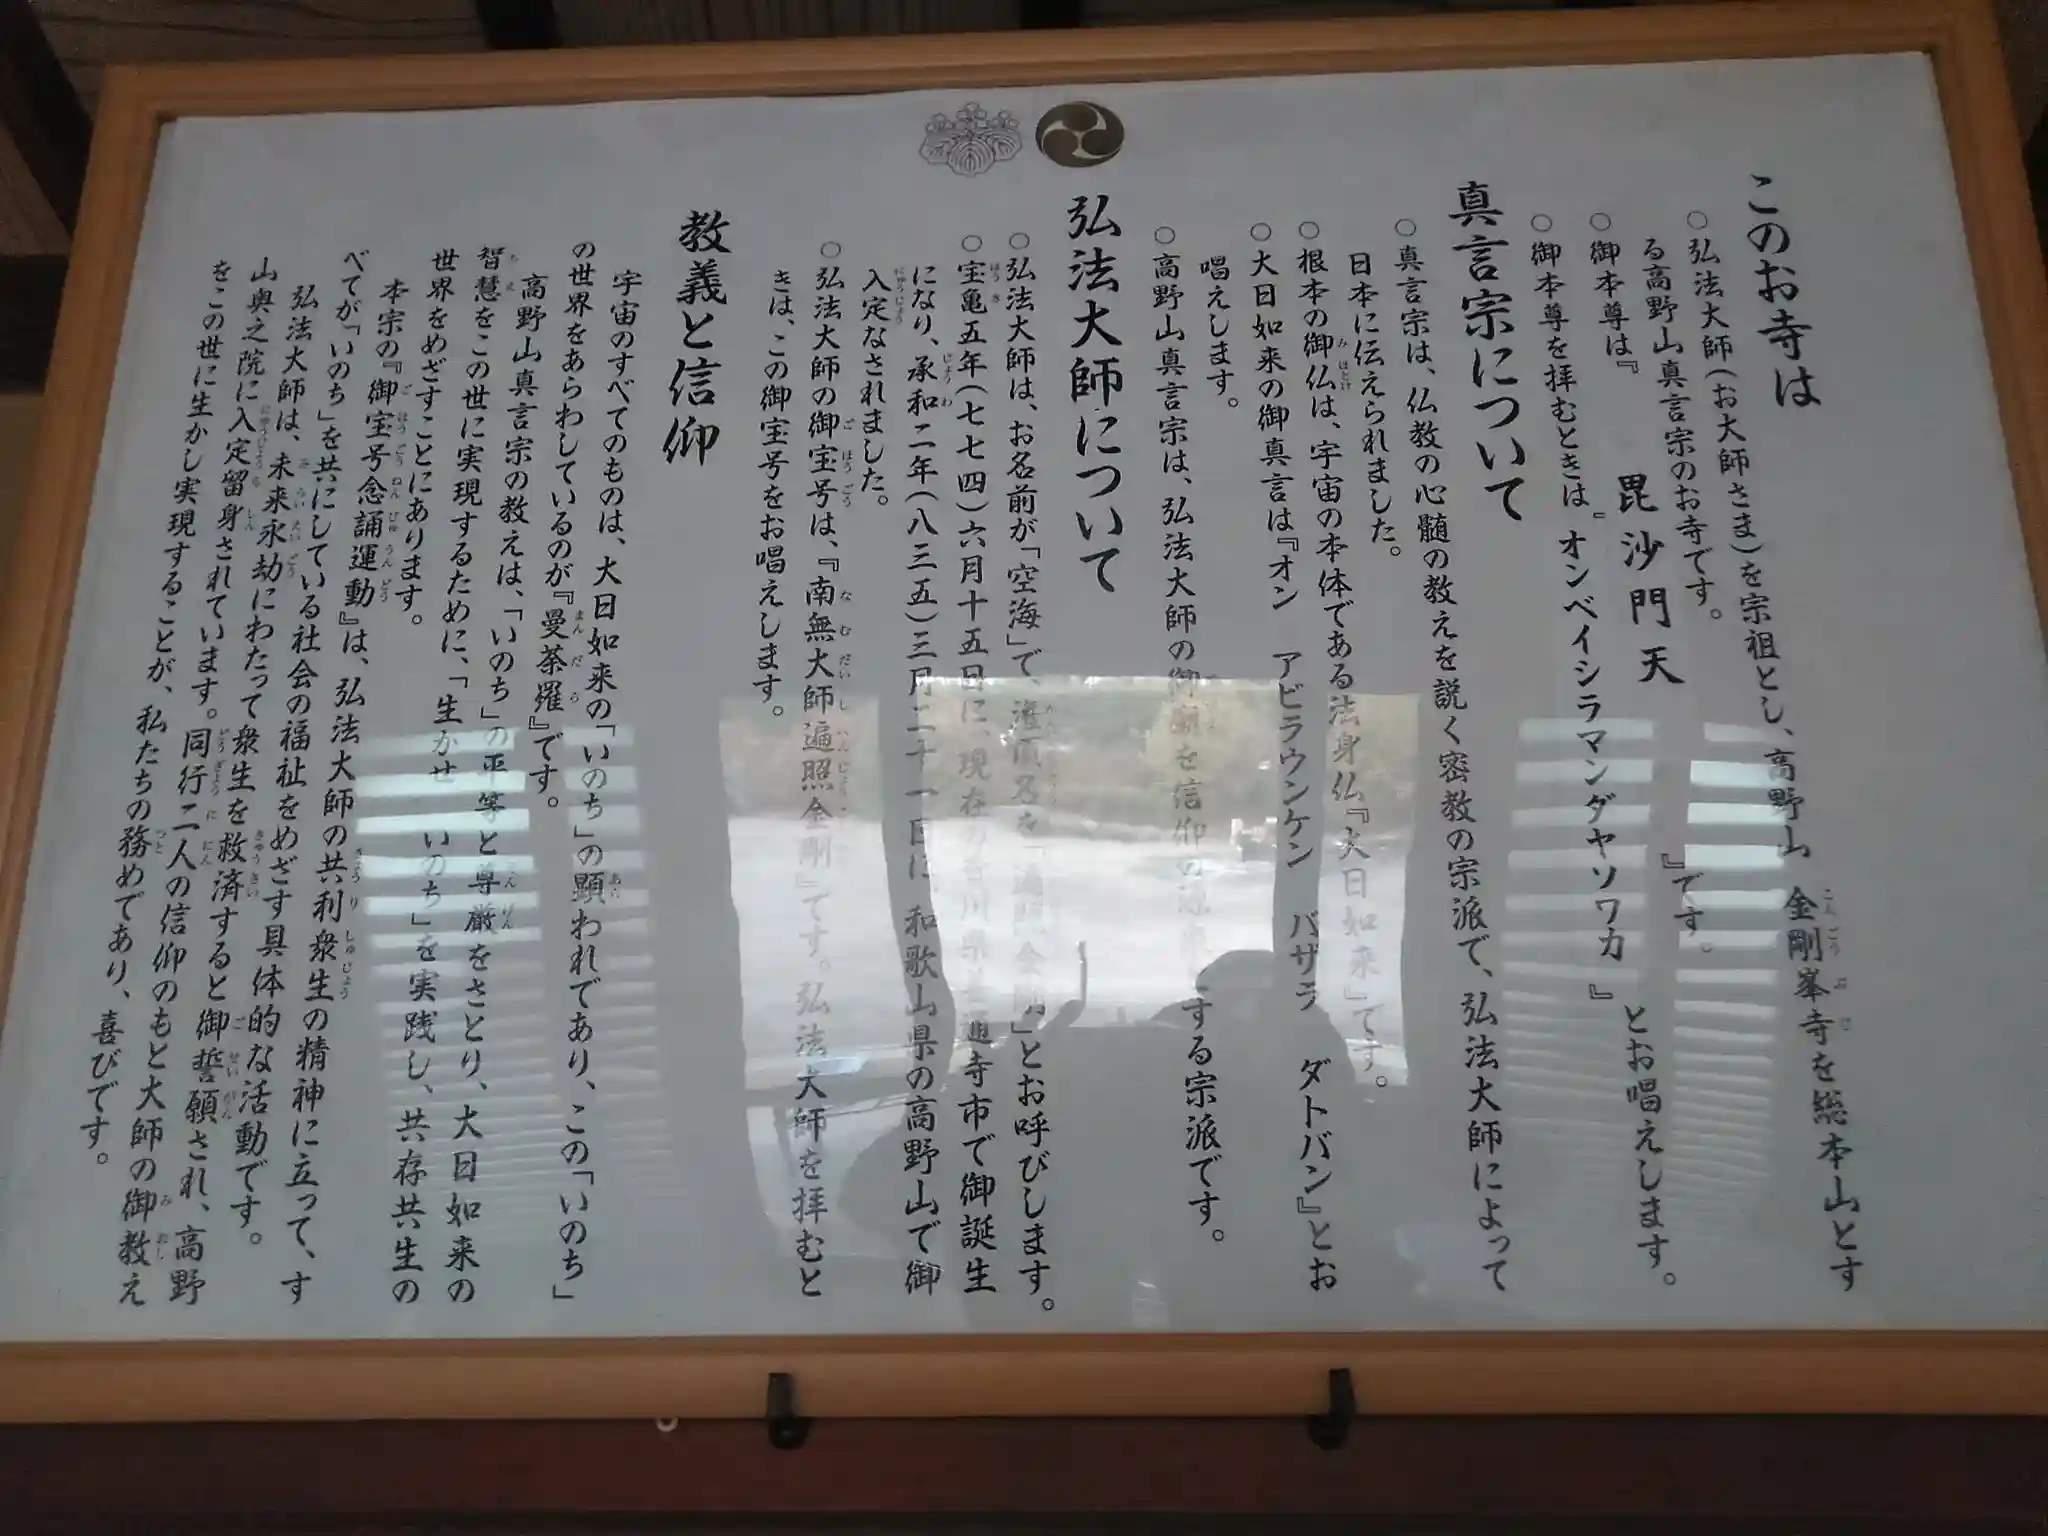 このお寺は
○弘法大師(お大師さま)を宗祖とし、高野山 金剛峯寺を総本山とす
る高野山真言宗のお寺です。
○御本尊は『 毘沙門天 』です。
○御本尊を拝むときは『オンベイシラマンダヤソワカ』とお唱えします。
真言宗について
○真言宗は、仏教の心髄の教えを説く密教の宗派で、弘法大師によって
日本に伝えられました。
○根本の御仏は、宇宙の本体である法身仏『大日如来』です。
○大日如来の御真言は『オン アビラウンケン バザラ ダトバン』とお
唱えします。
○高野山真言宗は、弘法大師の御廟を信仰の源泉 する宗派です。
弘法大師について
○弘法大師は、お名前が「空海」で、灌頂名を「遍照金剛」とお呼びします。
○宝亀五年(七七四)六月十五日に、現在の香川県善通寺市で御誕生
になり、承和二年(八三五)三月二十一日に、和歌山県の高野山で御
入定なされました。
○弘法大師の御宝号は、『南無大師遍照金剛』です。弘法大師を拝むと
きは、この御宝号をお唱えします。
教義と信仰
宇宙のすべてのものは、大日如来の「いのち」の顕われであり、この「いのち」
の世界をあらわしているのが『曼荼羅』です。
高野山真言宗の教えは、「いのち」の平等と尊厳をさとり、大日如来の
智慧をこの世に実現するために、「生かせ いのち」を実践し、共存共生の
世界をめざすことにあります。
本宗の『御宝号念誦運動』は、弘法大師の共利衆生の精神に立って、す
べてが「いのち」を共にしている社会の福祉をめざす具体的な活動です。
弘法大師は、未来永劫にわたって衆生を救済すると御誓願され、高野
山奥之院に入定留身されています。同行二人の信仰のもと大師の御教え
をこの世に生かし実現することが、私たちの務めであり、喜びです。